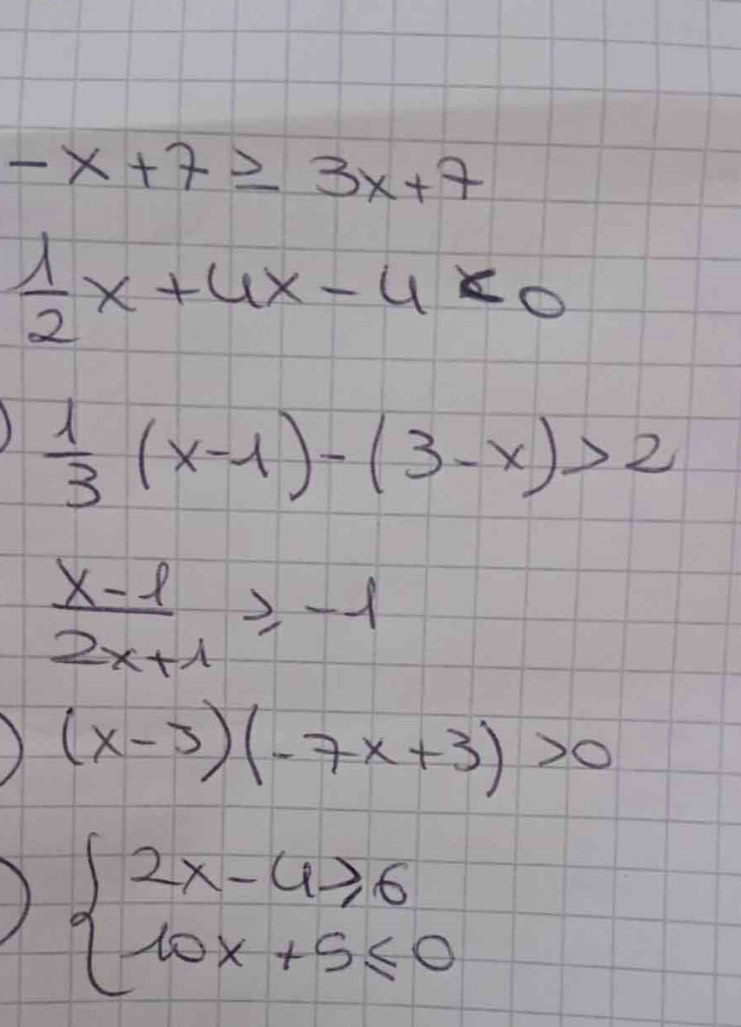 -x+7 ≥ 3x+7
1/2 x + 4x - 4 < 0
) 1/3 (x-1) - (3-x) > 2
x-1 / 2x+1 ≥ -1
) (x-3)(-7x+3) > 0
) { 2x-4 ≥ 6
10x+5 ≤ 0